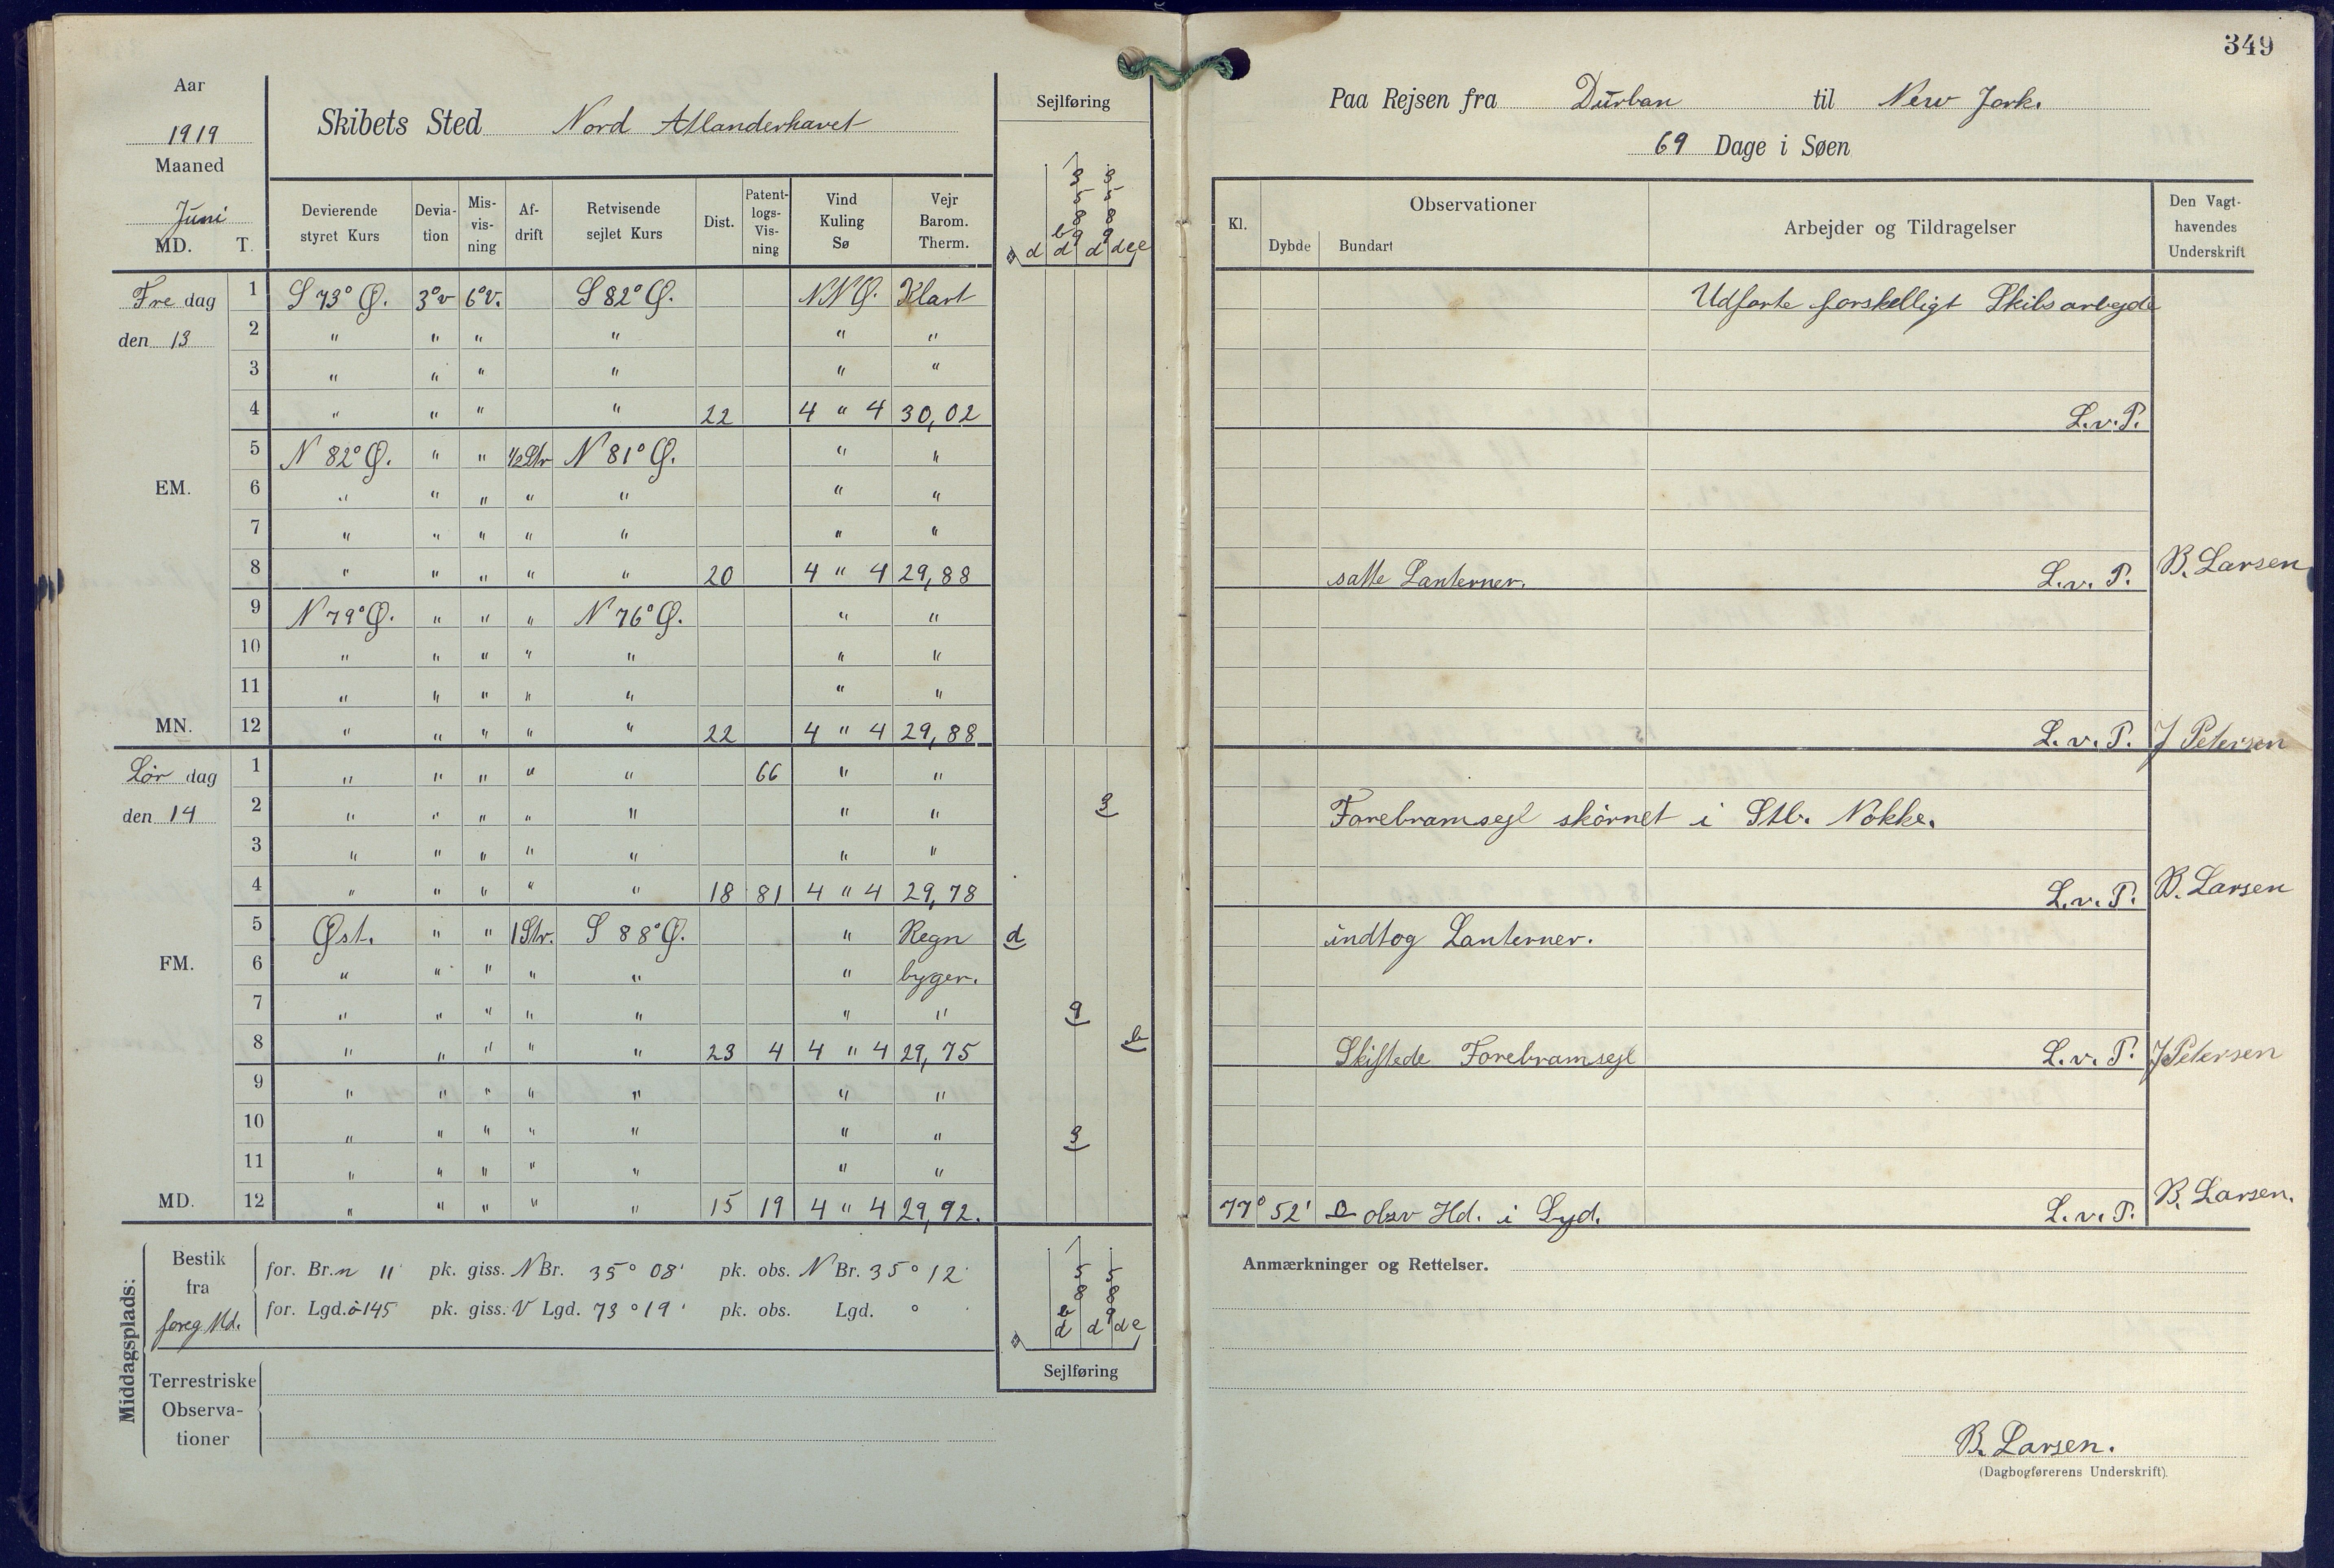 Aar
1919
Maaned
Juni
MD. T.
Skibets Sted Nord Atlanderhavet
Sejlføring
Devierende styret Kurs
Devia-tion
Mis-vis-ning
Af-drift
Retvisende sejlet Kurs
Dist.
Patent-logs-Vis-ning
Vind Kuling Sø
Vejr Barom. Therm.
Fre dag 1 S 73° Ø. 3°v 6°V. S 82° Ø. NNØ. Klart
den 13 2 " " " " " "
3 " " " " " "
4 " " " " 22 4 " 4 30,02
5 N 82° Ø. " " 1/2 Str N 81° Ø. " "
EM. 6 " " " " " " "
7 " " " " " " "
8 " " " " " 20 4 " 4 29,88
9 N 79° Ø. " " " N 76° Ø. " "
10 " " " " " " "
11 " " " " " " "
MN. 12 " " " " " 22 4 " 4 29,88
Lör dag 1 " " " " " 66 " "
den 14 2 " " " " " " " 3
3 " " " " " " "
4 " " " " " 18 81 4 " 4 29,78
5 Øst. " " 1 Str. S 88° Ø. " Regn d
FM. 6 " " " " " " byger.
7 " " " " " " " 9
8 " " " " " 23 4 4 " 4 29,75 b
9 " " " " " " "
10 " " " " " " " 3
11 " " " " " " "
MD. 12 " " " " " 15 19 4 " 4 29,92.
Middagsplads:
Bestik fra foreg Md.
for. Br. n 11' pk. giss. N Br. 35° 08' pk. obs. N Br. 35° 12'
for. Lgd. ö 145 pk. giss. V Lgd. 73° 19' pk. obs. Lgd. °
Terrestriske Observa-tioner
Sejlføring
349
Paa Rejsen fra Durban til New Jork.
69 Dage i Søen
Kl.
Observationer
Dybde Bundart
Arbejder og Tildragelser
Den Vagt-havendes Underskrift
Udförte forskelligt Skibsarbejde
L.v.P.
satte Lanterner. L.v.P. B. Larsen
L.v.P. J Petersen
Forebramsejl skörnet i Stb. Nokke.
L.v.P. B. Larsen
indtog Lanterner.
Skiftede Forebramsejl L.v.P. J Petersen
77° 52' obsv Hd. i Syd. L.v.P. B. Larsen.
Anmærkninger og Rettelser.
B. Larsen.
(Dagbogførerens Underskrift)